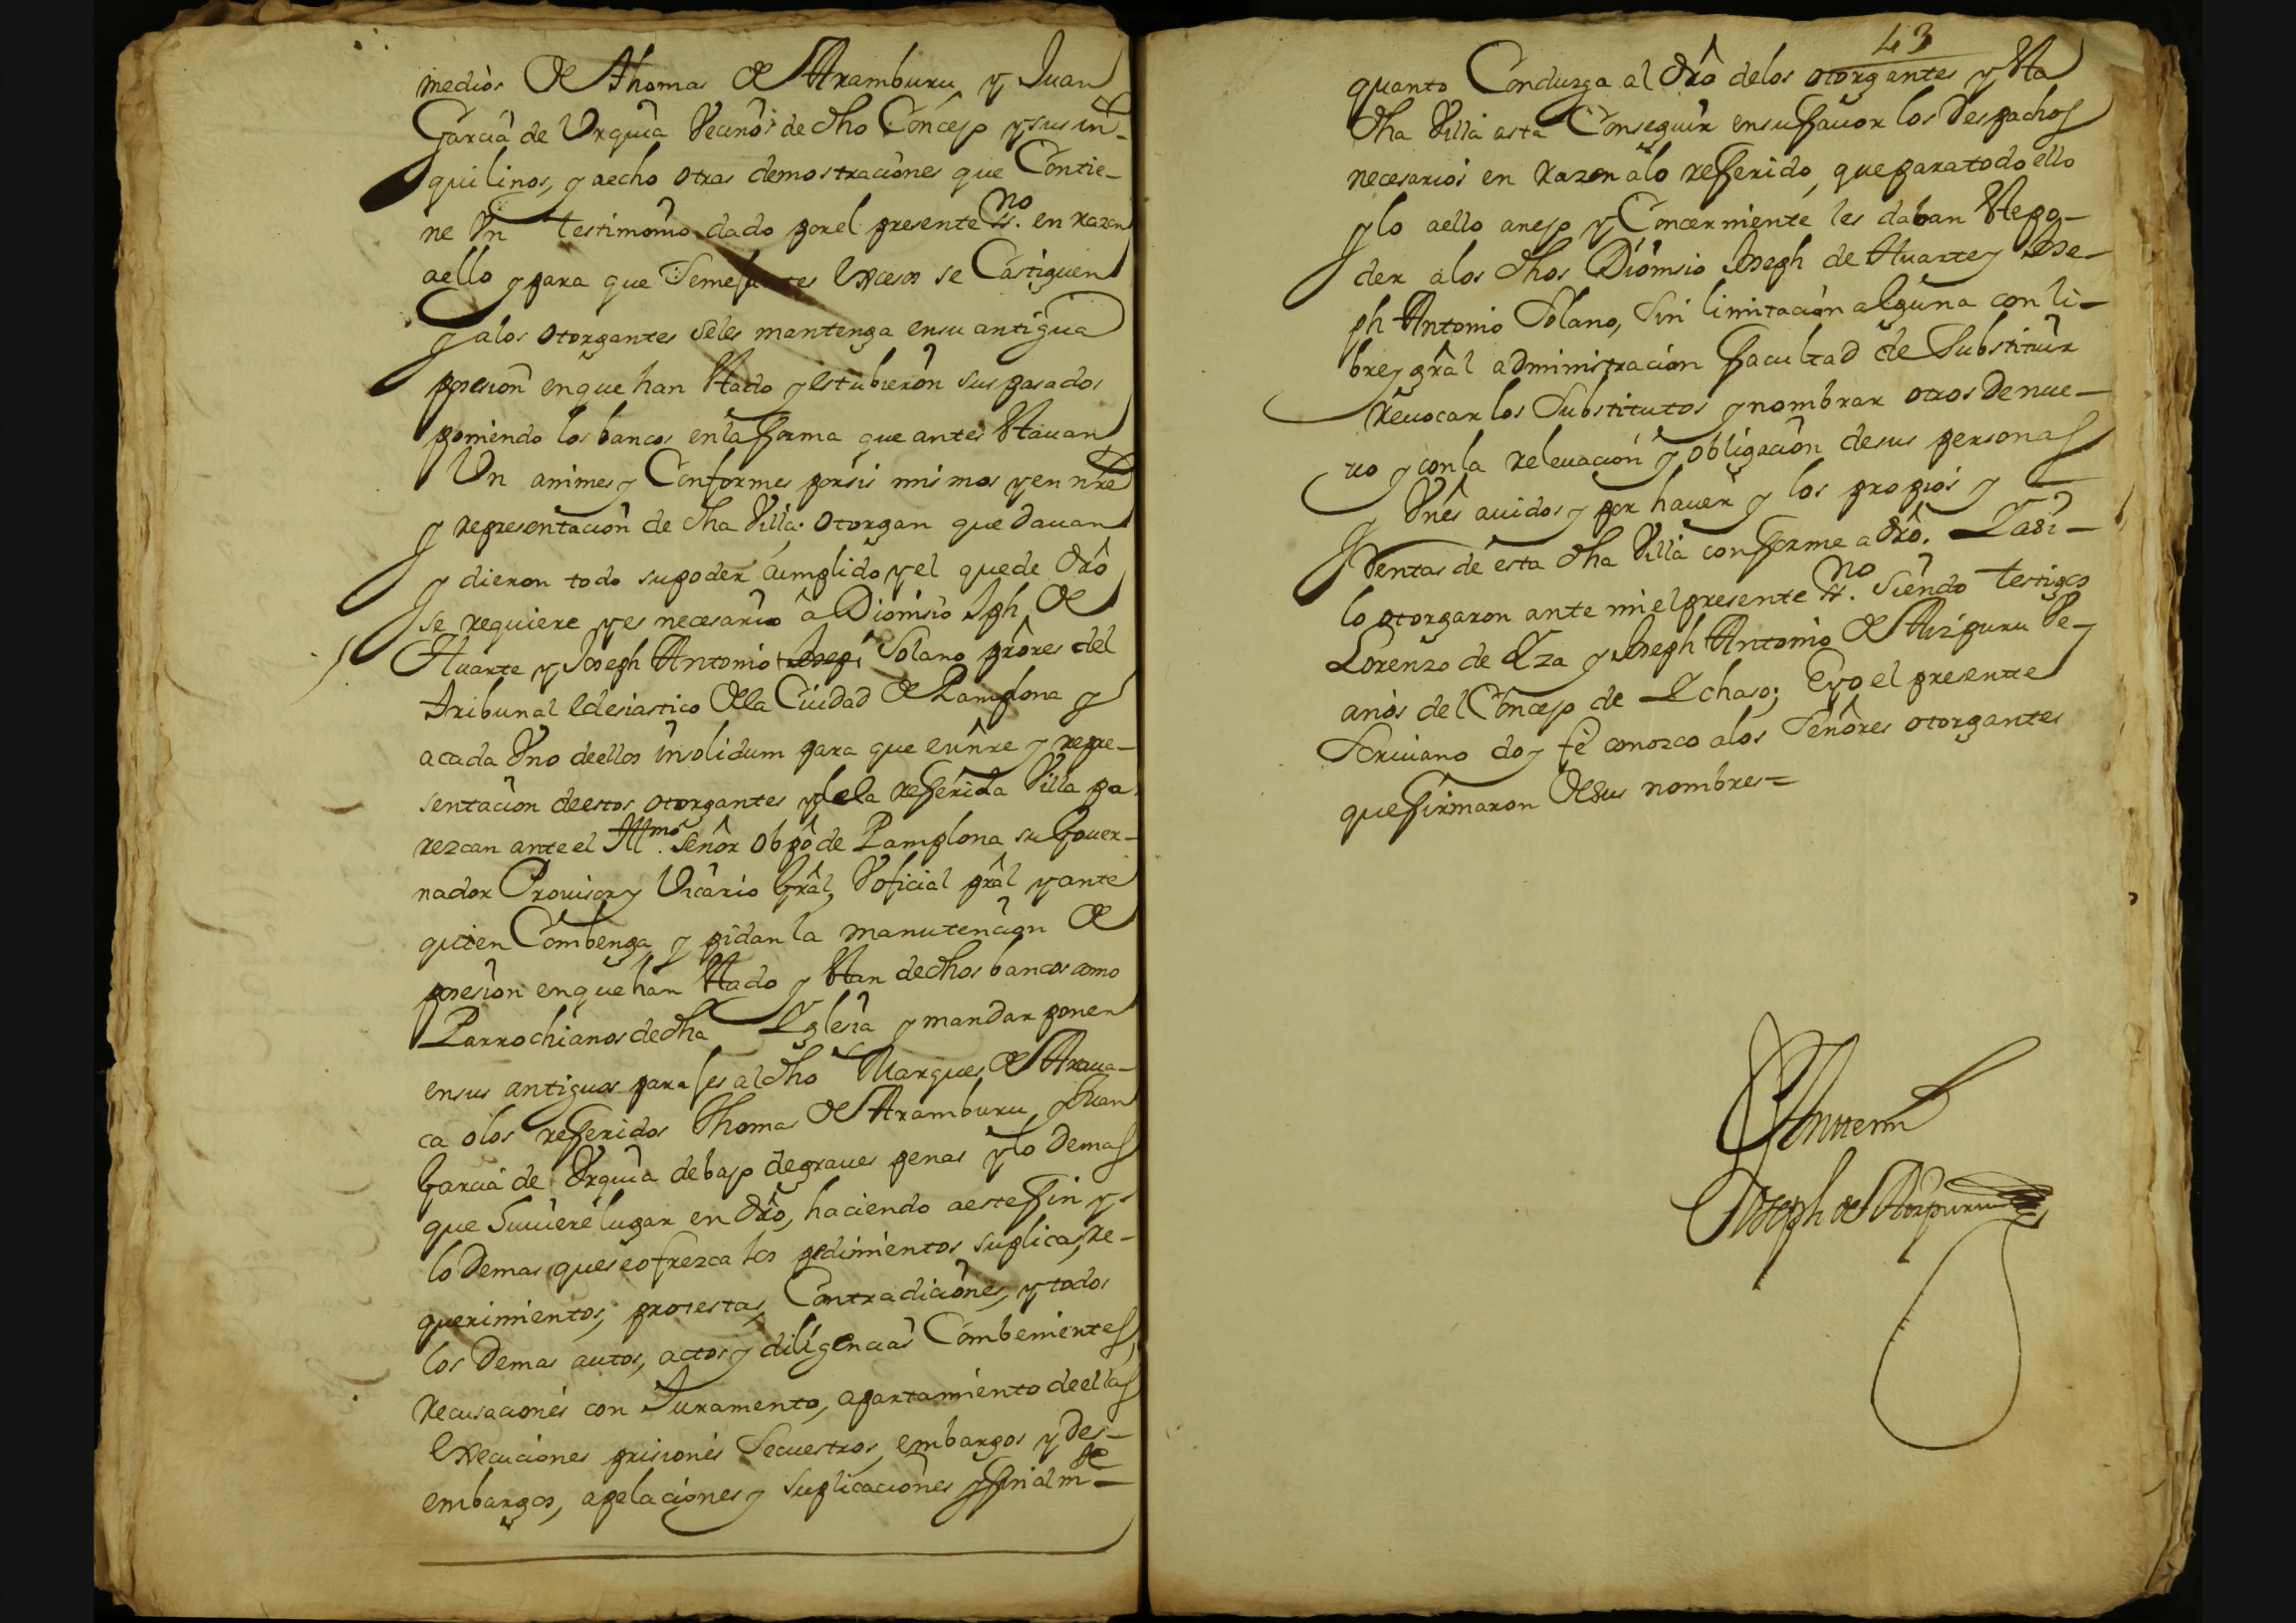 medios de Thomas de Aramburu, y Juan
Garcia de Urquia Vecinos de dho Concejo y sus in-
quilinos, y aecho otras demostraciones que Contie-
ne Vn testimonio dado por el presente ss.no en razon
aello y para que Semejantes Excesos se Castiguen
y alos otorgantes seles mantenga ensu antigua
posesion enque han estado y estubieron sus pasados
poniendo los bancos enla fforma que antes estauan
Vn animes y Conformes porsis mismos yen nre
y representacion de dha Villa; otorgan que dauan
y dieron todo supoder cumplido yel quede dro
se requiere yes necesario â Dionisio Jph de
Huarte y Joseph Antonio Solano prores del
Tribunal Eclesiastico dela Ciudad de Pamplona y
acada Vno deellos insolidum para que ennre y repre-
sentacion deestos otorgantes y dela refferida Villa pa
rezcan ante el Ill.mo Señor Obpô de Pamplona su Gouer-
nador Prouisor y Vicario Grâl, V oficial grâl y ante
quien Combenga, y pidan la manutencion de
posesion enque han estado y estan dedhos bancos como
Parrochianos de dha Yglesia y mandar poner
ensus antiguos parajes al dho Marques de Araua-
ca olos refferidos Thomas de Aramburu, y Juan
Garcia de Urquia debajo degraues penas ylo demas
que Huuiere lugar en dro, haciendo aesteffin y
lo Demas queseofrezca los pedimientos suplicas, re-
querimientos, protestas, Contradiciones, y todos
los Demas autos, actos y diligencias Combenientes,
Recusaciones con Juramento, apartamiento deellas
Execuciones prisiones Secuestros, embargos y des-
embargos, apelaciones y Suplicaciones y ffinalm.te
43
quanto Conduzga al drô delos otorgantes y esta
dha Villa asta Conseguir ensu ffauor los Despachos
necesarios en Razon alo refferido, que paratodo ello
ylo aello anejo y Concerniente les daban este po-
der alos dhos Dionisio Joseph de Huarte y Jose-
ph Antonio Solano, Sin limitacion alguna con li-
bre y grâl administracion ffacultad de Substituir
Reuocar los Substitutos y nombrar otros De nue-
uo y conla releuacion y obligacion desus personas
y Vnês auidos y por hauer y los propios y
Rentas de esta dha Villa confforme a drô. Y asi-
lo otorgaron ante mi el presente ss.no Siendo testigos
Lorenzo de Yza y Joseph Antonio de Aizpuru Ve-
cinos del Concejo de Ychaso; Eyo el presente
Scriuano doy fé conozco alos Señores otorgantes
queffirmaron desus nombres =
Joseph de Aizpuru